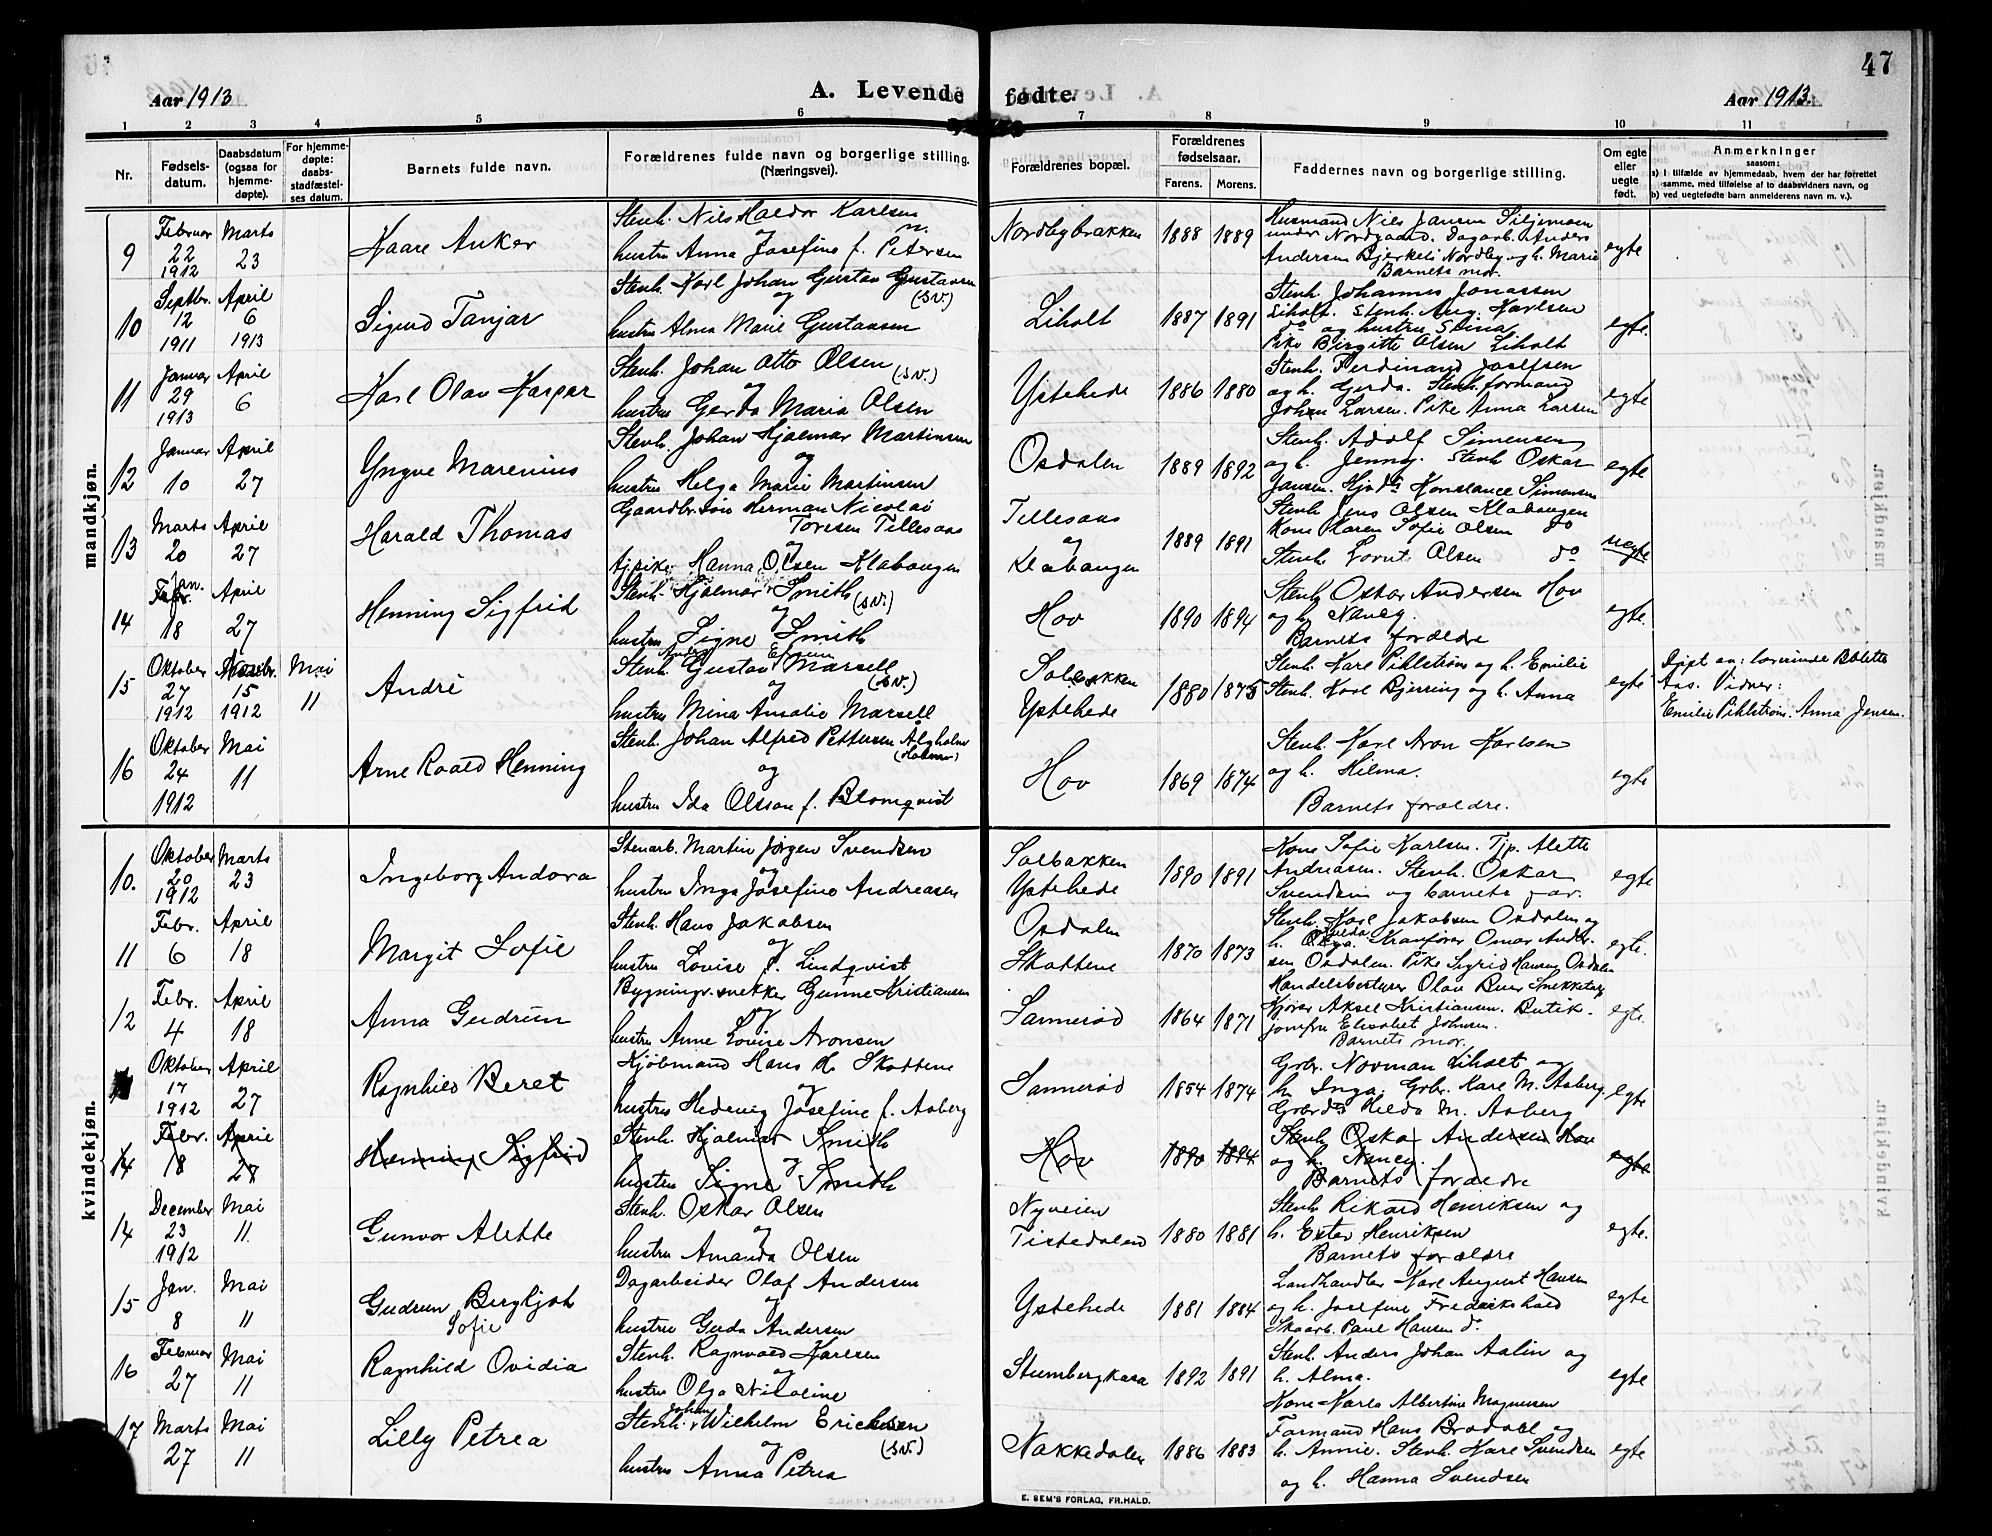 47
Aar 1913
A. Levende fødte.
Aar 1913.
1 2 3 4 5 6 7 8 9 10 11
Nr.
Fødselsdatum.
Daabsdatum (ogsaa for hjemmedøpte).
For hjemmedøpte: daabsstadfæstelses datum.
Barnets fulde navn.
Forældrenes fulde navn og borgerlige stilling. (Næringsvei).
Forældrenes bopæl.
Forældrenes fødselsaar.
Farens. Morens.
Faddernes navn og borgerlige stilling.
Om egte eller uegte født.
Anmerkninger
saasom:
a) i tilfælde av hjemmedaab, hvem der har forrettet samme, med tilføielse af to daabsvidners navn, og
b) ved uegtefødte børn anmelderens navn m. v.).
mandkjøn.
9
Februar 22 1912
Marts 23
Kaare Anker
Stenh. Nils Haldor Karlsen
hustru Anna Josefine f. Petersen
Nordbybrakken
1888 1889
Husmand Nils Jansen Siljemoen
under Nordgaard. Dagarb. Anders
Andersen Bjerkeli Nordby og h. Marie
Barnets mor.
egte
10
Septbr. 12 1911
April 6 1913
Sigurd Tanjar
Stenh. Karl Johan Gustav Gustavsen
og (S.V.)
hustru Alma Marie Gustavsen
Liholt
1887 1891
Stenh. Johannes Jonassen
Liholt. Stenh. Aug. Karlsen
do og hustru Stina
Pike Birgitte Olsen Liholt
egte.
11
Januar 29 1913
April 6
Karl Olav Kaspar
Stenh. Johan Otto Olsen (S.V.)
og
hustru Gerda Maria Olsen
Ystehede
1886 1880
Stenh. Ferdinand Josefsen
og h. Gerda. Stenh. formand
Johan Larsen. Pike Anna Larsen
egte
12
Januar 10
April 27
Yngve Marenius
Stenh. Johan Hjalmar Martinsen
og
hustru Helga Marie Martinsen
Osdalen
1889 1892
Stenh. Adolf Simensen
og h. Jenny. Stenh Oskar
Jansen. Konstance Simensen
egte
13
Marts 20
April 27
Harald Thomas
Gaardbr. søn Herman Nicolai
Toresen Tillesaas
og
tj.pike Hanna Olsen Klabaugen
Tillesaas
og
Klabaugen
1889 1891
Stenh Jens Olsen Klabaugen
Kone Karen Sofie Olsen do
Stenh. Olsen do
uegte
14
Jan. Febr. 18
April 27
Henning Sigfrid
Stenh. Hjalmar Smith
og (S.V.)
hustru Signe Smith
Hov
1890 1894
Stenh Oskar Andersen Hov
og h. Nancy
Barnets forældre
egte.
15
Oktober 27 1912
Novbr. 15 1912
Mai 11
André
Stenh. Gustav Marsell
og (S.V.)
hustru Mina Amalie Marsell
Solbakken
Ystehede
1880 1875
Stenh. Karl Pihlstrøm og h. Emilie
Stenh. Karl Bjerring og h. Anna
egte
Døpt av: lærerinde Bolette
Aas. Vidner:
Emilie Pihlstrøm. Anna Jensen.
16
Oktober 24 1912
Mai 11
Arne Roald Henning
Stenh. Johan Alfred Pettersen Algholm
og
hustru Ida Olsson f. Blomqvist
Hov
1869 1874
Stenh. Karl Aron Karlsen
og h. Hilma.
Barnets forældre.
egte
kvindekjøn.
10.
Oktober 20 1912
Marts 23
Ingeborg Andora
Stenarb. Martin Jørgen Svendsen
og
hustru Inga Josefine Andreasen
Solbakken
Ystehede
1890 1891
Kone Sofie Karlsen. Tjp. Alette
Andreasen. Stenh. Oskar
Svendsen og barnets far.
egte
11
Febr. 6
April 18
Margit Sofie
Stenh. Hans Jakobsen
og
hustru Lovise f. Lindqvist
Osdalen
Skottene
1870 1873
Stenh. Karl Jakobsen Osdalen og
h. Kranfører Omar Andersen
Osdalen. Pike Sigrid Hansen Osdalen
egte.
12
Febr. 4
April 18
Anna Gudrun
Bygningssnekker Gunne Kristiansen
og
hustru Anne Lovise Aronsen
Sannerød
1864 1871
Handelsbestyrer Olav Buer
Kjører Aksel Kristiansen. Butikjomfru
Elisabet Johnsen.
Barnets mor.
egte.
Oktober 17 1912
April 27
Ragnhild Beret
Kjøbmand Hans H. Skottene
og
hustru Hedevig Josefine f. Aaberg
Sannerød
1854 1874
Grbr. Norman Liholt og
h. Inga. Grbr. Karl M. Aaberg.
Hilda M. Aaberg
egte
14
Febr. 18
April 27
Henning Sigfrid
Stenh. Hjalmar Smith
og
hustru Signe Smith
Hov
1890 1894
Stenh Oskar Andersen Hov
og h. Nancy.
Barnets forældre
egte
14
December 23 1912
Mai 11.
Gunvor Alette
Stenh. Oskar Olsen
og
hustru Amanda Olsen
Nyveien
Tistedalen
1880 1881
Stenh. Rikard Henriksen og
h. Ester Henriksen
Barnets forældre
egte.
15
Jan. 8
Mai 11
Gudrun Bergljot
Sofie
Dagarbeider Olaf Andersen
og
hustru Gerda Andersen
Ystehede
1881 1884
Landhandler Karl August Hansen
og h. Josefine Fredrikshald
Skoarb. Paul Hansen do
egte
16
Februar 27
Mai 11
Ragnhild Ovidia
Stenh. Ragnvald Karlsen
og
hustru Olga Nikoline
Stumbergkasa
1892 1891
Stenh. Anders Johan Aalin og
h. Alma.
Kone Karla Albertine Magnussen
egte
17
Marts 27
Mai 11
Lilly Petrea
Stenh. Johan Wilhelm Ericksen
og (S.V.)
hustru Anna Petrea
Nakkedalen
1886 1883
Formand Hans Brodahl og
h. Annie. Stenh. Karl Svendsen
og h. Hanna Svendsen
egte
E. SEM'S FORLAG, FR.HALD.